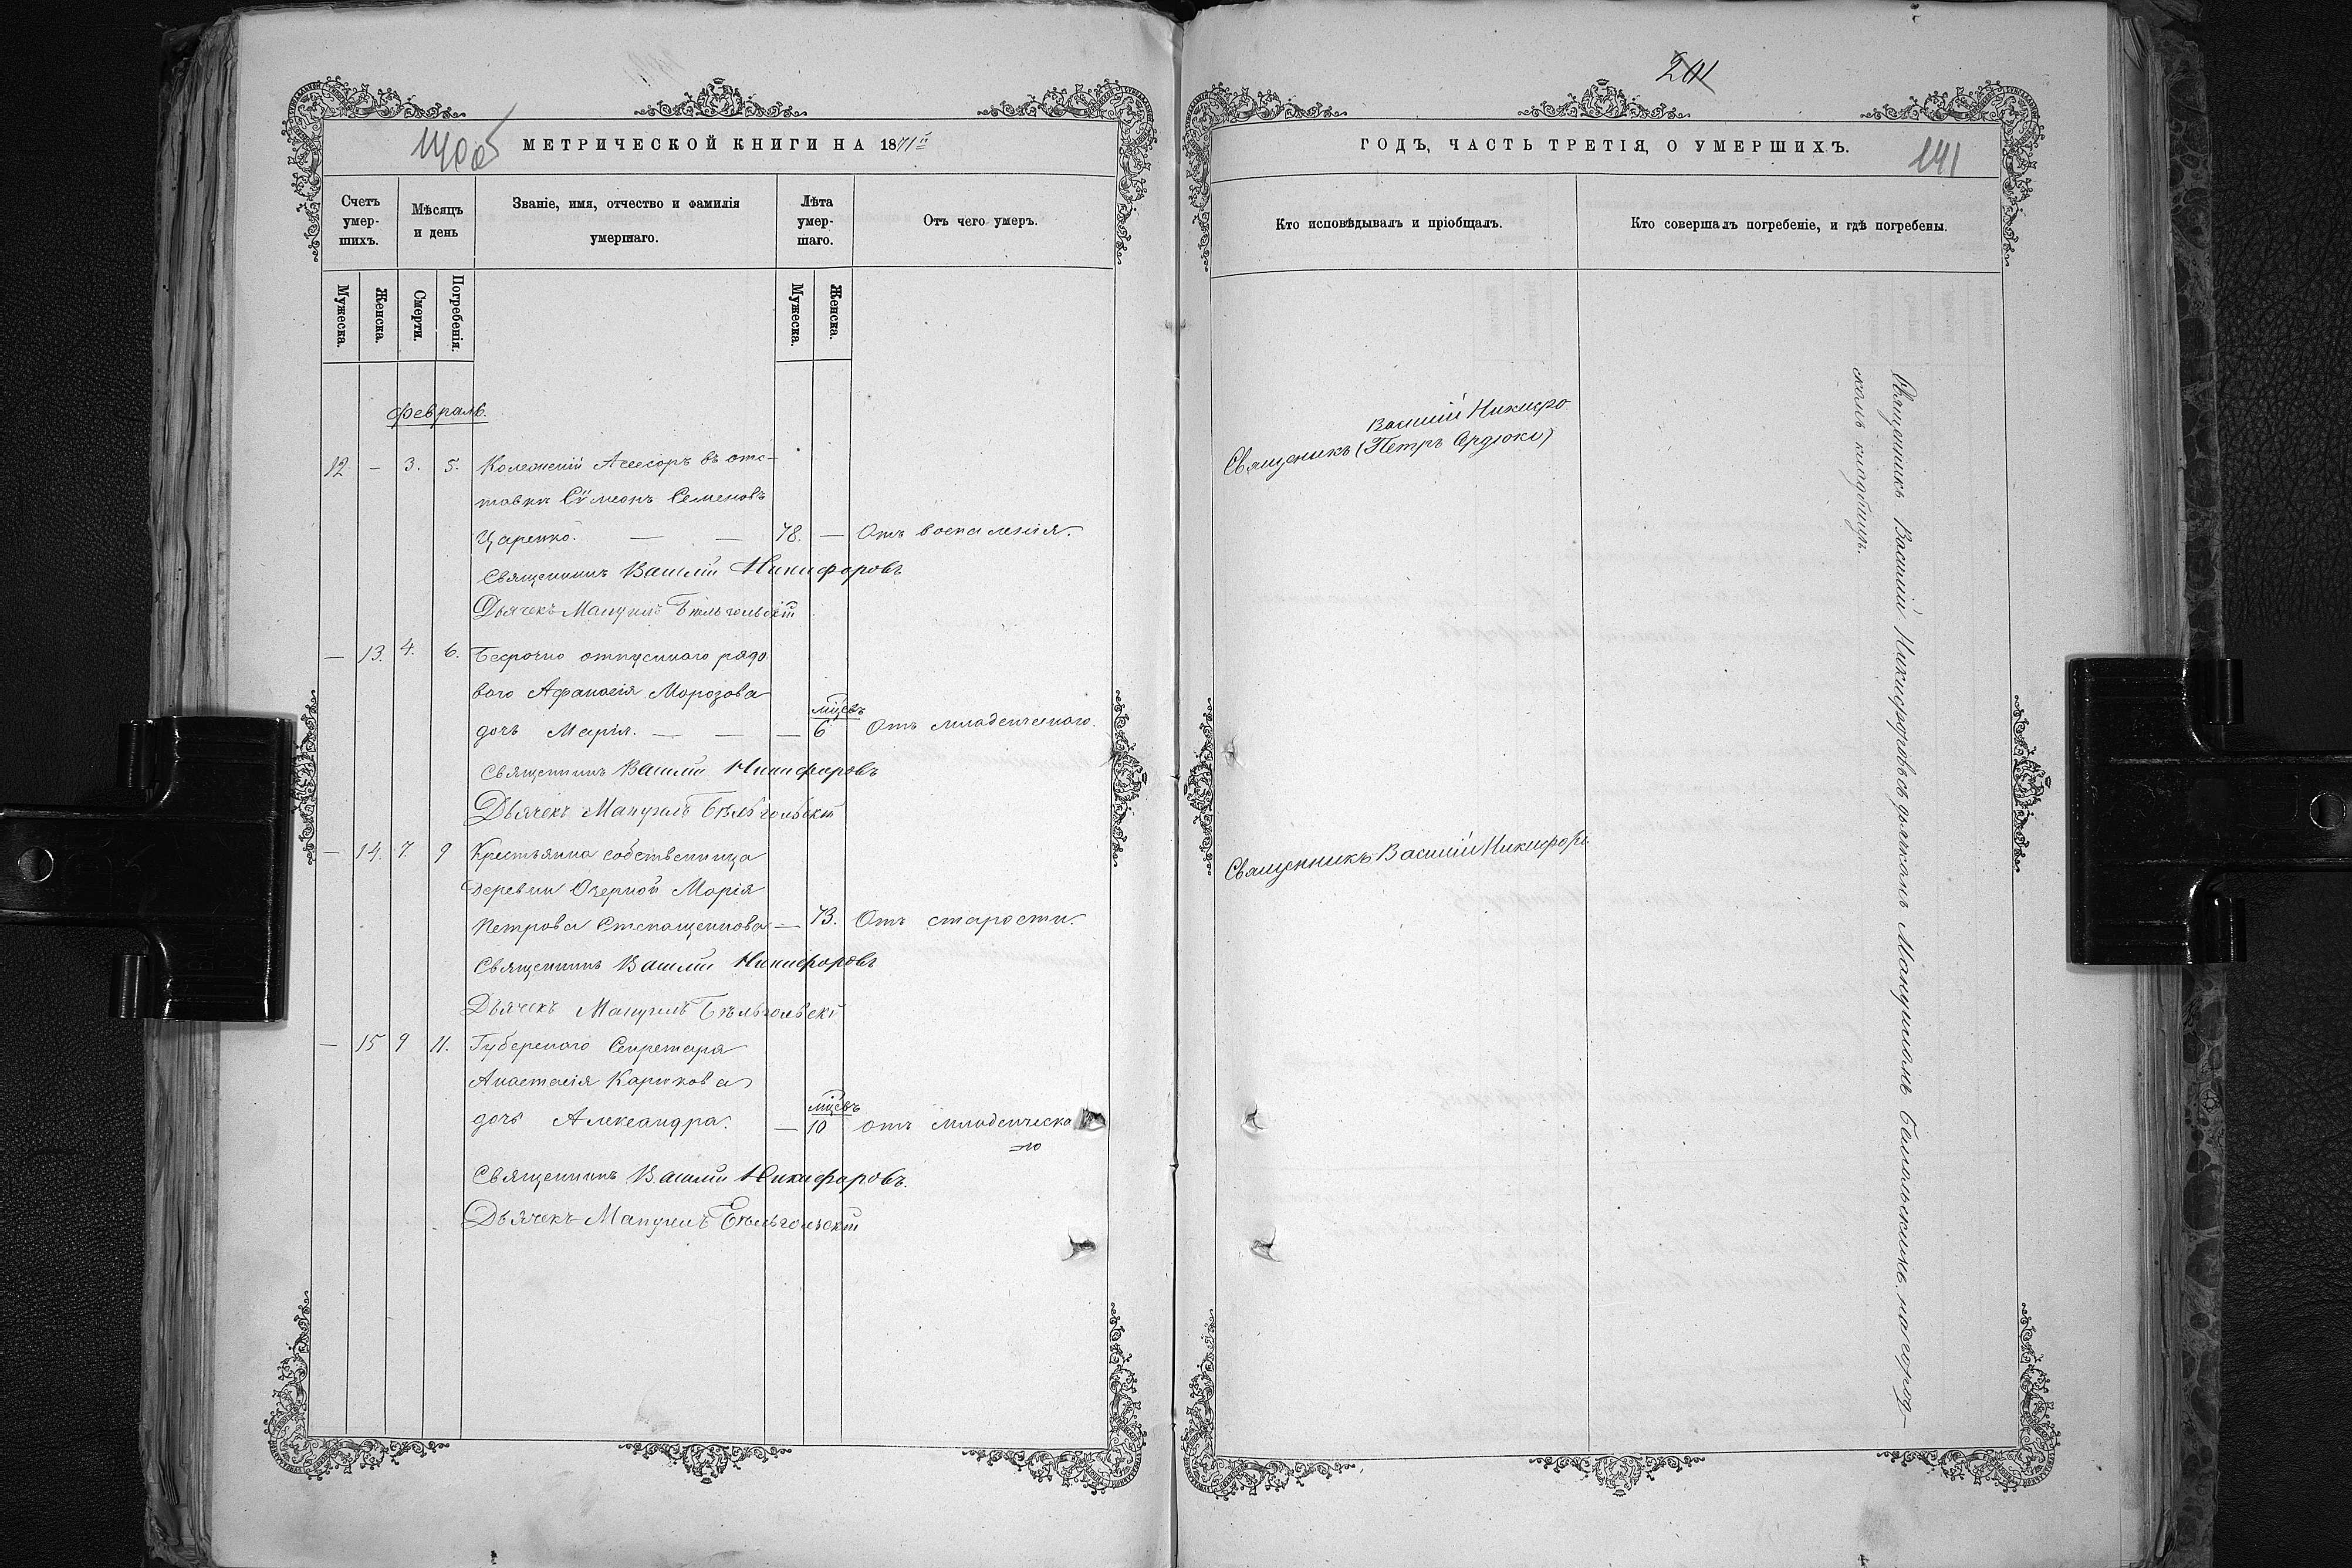 140об
МЕТРИЧЕСКОЙ КНИГИ НА 1871й
Счетъ умер-шихъ.
Мѣсяцъ и день
Званіе, имя, отчество и фамилія умершаго.
Лѣта умер-шаго.
Отъ чего умеръ.
Мужеска.
Женска.
Смерти.
Погребенія.
Мужеска.
Женска.
Февраль.
12 — 3. 5. Колежскій Асесоръ въ отс-
тавки Сѵмеонъ Семеновъ
Царенко. — — 78. — Отъ воспаленія.
Священникъ Василій Никифоровъ
Дьячекъ Мануилъ Бѣльгольскій
— 13. 4. 6. Безсрочно отпускнаго рядо
вого Афанасія Морозова
дочь Марія. — — — мцевъ 6 Отъ младенческаго.
Священникъ Василій Никифоровъ
Дьячекъ Мануилъ Бѣльгольскій
— 14. 7. 9 Крестьянка собственница
деревни Озерной Марія
Петрова Степащенкова — 73. Отъ старости.
Священникъ Василій Никифоровъ
Дьячекъ Мануилъ Бѣльгольскій
— 15 9 11. Губерскаго Секретаря
Анастасія Карикова
дочь Александра. — мцевъ 10 отъ младенческа
=го
Священникъ Василій Никифоровъ.
Дьячекъ Мануилъ Бѣльгольскій
201
ГОДЪ, ЧАСТЬ ТРЕТІЯ, О УМЕРШИХЪ.
141
Кто исповѣдывалъ и пріобщалъ.
Кто совершалъ погребеніе, и гдѣ погребены.
Василій Никифо
Священикъ (Петръ Ордюки)
Священникъ Василій Никифоръ
Священникъ Василій Никифоровъ съ дьячкомъ Мануиломъ Бѣлгольскимъ. на город-
скомъ кладбищѣ.